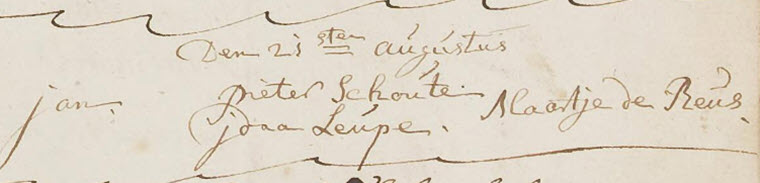 Den 21 sten augustus
jan. pieter Schoute. Maartje de Reus.
jdaa Leupe.